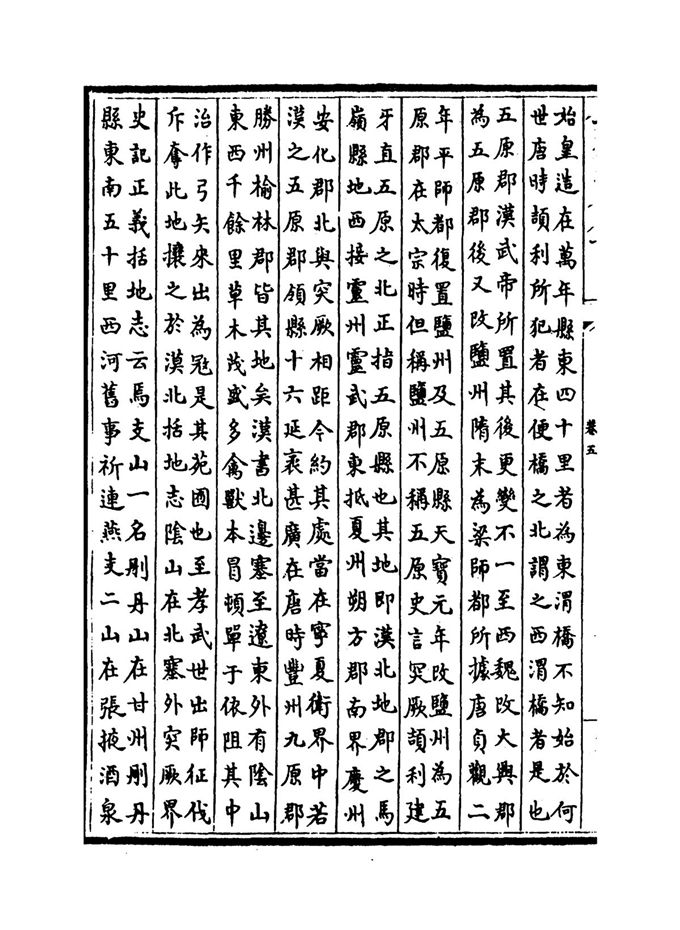 卷五
始皇造在萬年縣東四十里者為東渭橋不知始於何
世唐時頡利所犯者在便橋之北謂之西渭橋者是也
五原郡漢武帝所置其後更變不一至西魏改大興郡
為五原郡後又改鹽州隋末為梁師都所據唐貞觀二
年平師都復置鹽州及五原縣天寶元年改鹽州為五
原郡在太宗時但稱鹽州不稱五原史言突厥頡利建
牙直五原之北正指五原縣也其地即漢北地郡之馬
嶺縣地西接靈州靈武郡東抵夏州朔方郡南界慶州
安化郡北與突厥相距今約其處當在寧夏衛界中若
漢之五原郡領縣十六延袤甚廣在唐時豐州九原郡
勝州榆林郡皆其地矣漢書北邊塞至遼東外有陰山
東西千餘里草木茂盛多禽獸本冒頓單于依阻其中
治作弓矢來出為寇是其苑囿也至孝武世出師征伐
斥奪此地攘之於漠北括地志陰山在北塞外突厥界
史記正義括地志云焉支山一名刪丹山在甘州刪丹
縣東南五十里西河舊事祈連燕支二山在張掖酒泉